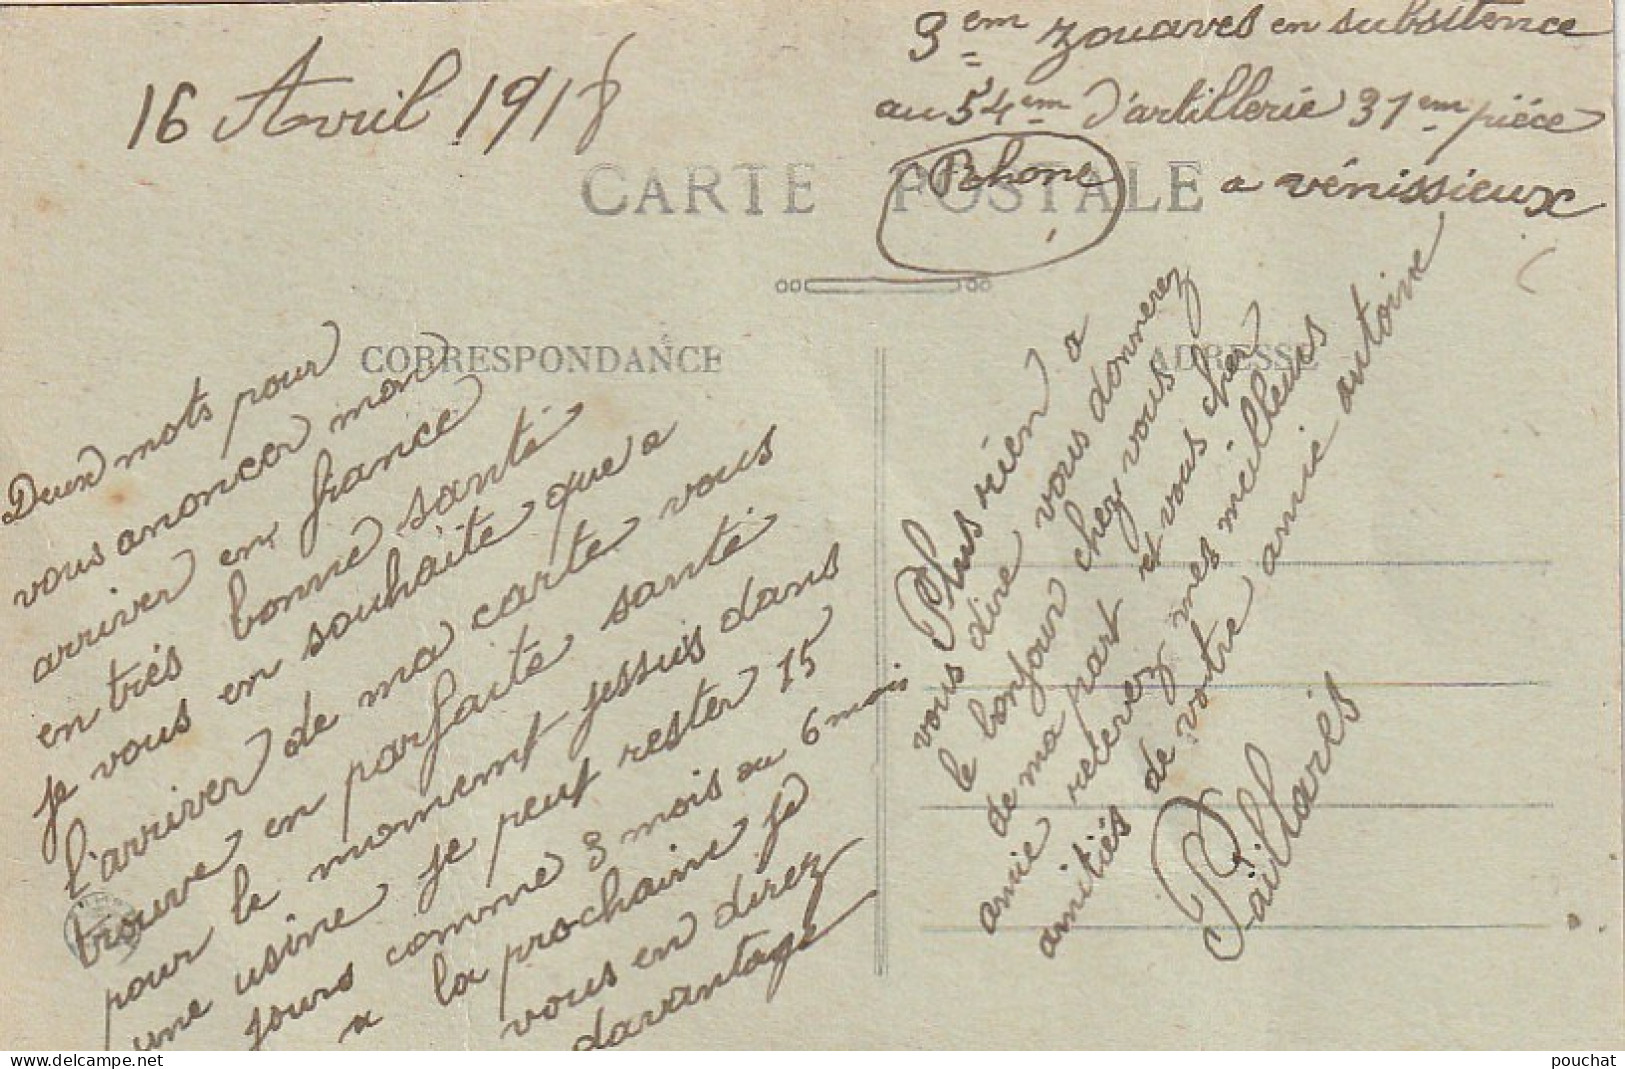 16 Avril 1918
3em zouaves en subsitence
au 54em d'artillerie 31em piéce
Rhone a vénissieux
CARTE POSTALE
CORRESPONDANCE
ADRESSE
Deux mots pour
vous anoncer mon
arriver en france
en trés bonne santé
je vous en souhaite que a
l'arriver de ma carte vous
trouve en parfaite santé
pour le moment jessuis dans
une usine je peut rester 15
jours comme 3 mois au 6 mois
a la prochaine je
vous en direz
davantage
Plus rien a
vous dire vous donnerez
le bonjour chez vous
de ma part et vous cher
amie recerez mes meilleurs
amitiés de votre amie antoine
Paillarés
www.delcampe.net
pouchat